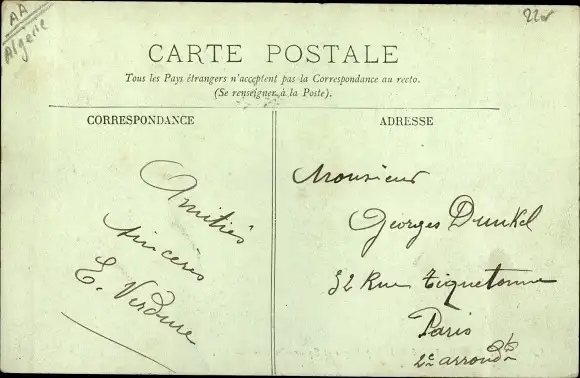 AA
Algerie
22or
CARTE POSTALE
Tous les Pays étrangers n'acceptent pas la Correspondance au recto.
(Se renseigner à la Poste).
CORRESPONDANCE
ADRESSE
Amitiés
sincères
E. Verdure
Monsieur
Georges Dunkel
52 Rue Tiquetonne
Paris
2e arrondt